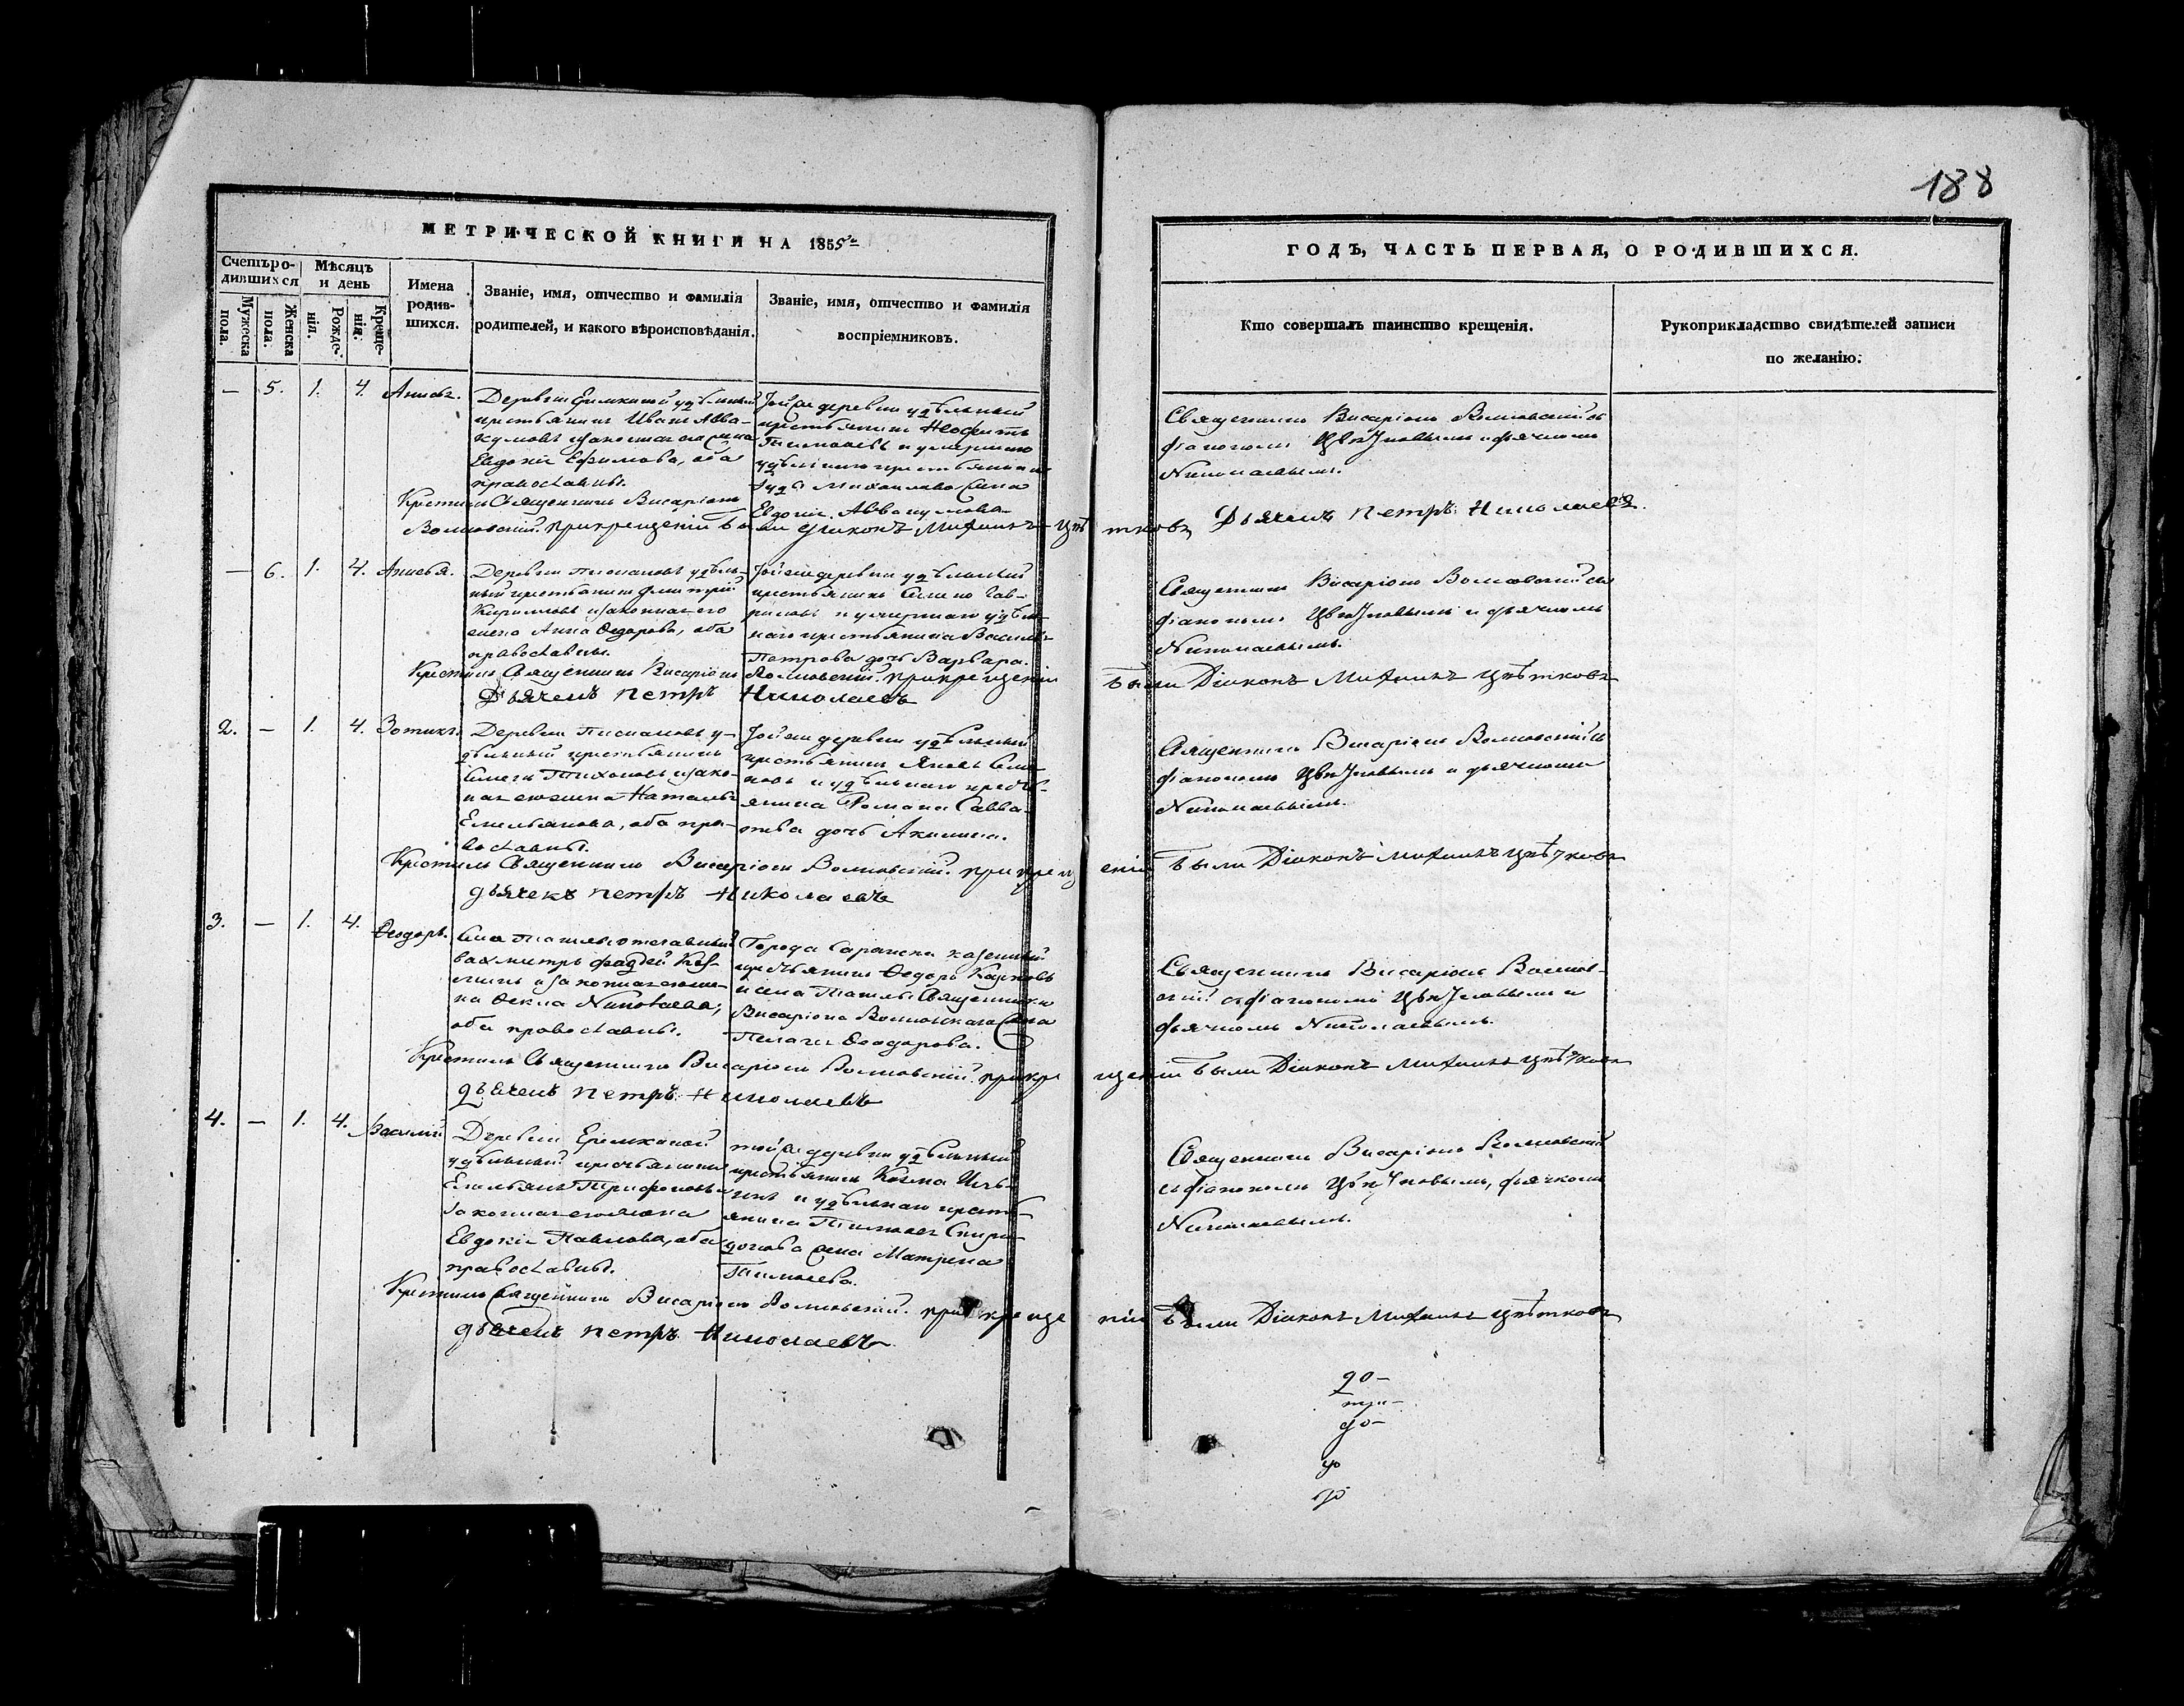 188
МЕТРИЧЕСКОЙ КНИГИ НА 1855й
ГОДЪ, ЧАСТЬ ПЕРВАЯ, О РОДИВШИХСЯ.
Счетъ ро-
дившихся
Мужеска
пола.
Женска
пола.
Мѣсяцъ
и день
Рожде-
нія.
Креще-
нія.
Имена
родив-
шихся.
Званіе, имя, отчество и фамилія
родителей, и какого вѣроисповѣданія.
Званіе, имя, отчество и фамилія
воспріемниковъ.
Кто совершалъ таинство крещенія.
Рукоприкладство свидѣтелей записи
по желанію.
— 5. 1. 4.
Деревни удѣльный
крестьянинъ Иванъ Авва-
кумовъ и законная его жена
Евдокія Ефимова, оба
православны.
Той же деревни удѣльный
крестьянинъ Неофитъ
удѣльнаго крестьянина
Михайлова жена
Евдокія Аввакумова
Священникъ Висаріонъ съ
діакономъ Цвѣтковымъ и дьячкомъ
Николаевымъ.
Крестилъ Священникъ Висаріонъ
при крещеніи были Діаконъ Михаилъ Цвѣтковъ Дьячекъ Петръ Николаевъ.
— 6. 1. 4. Анисья.
Деревни удѣль-
ный крестьянинъ Дмитрій
Кириловъ и законная его
жена Анна Ѳедорова, оба
православны.
Той же деревни удѣльный
крестьянинъ Гав-
риловъ и умершаго удѣль-
наго крестьянина
Петрова дочь Варвара.
Священникъ Висаріонъ съ
діакономъ Цвѣтковымъ и дьячкомъ
Николаевымъ.
Крестилъ Священникъ Висаріонъ при крещеніи были Діаконъ Михаилъ Цвѣтковъ
Дьячекъ Петръ Николаевъ
2. — 1. 4. Зотикъ.
Деревни у-
дѣльный крестьянинъ
Тихоновъ и зако-
нная его жена Наталья
Емельянова, оба пра-
вославны.
Той же деревни удѣльный
крестьянинъ Яковъ
и удѣльнаго кресть-
янина Романа Савва-
дочь Акилина.
Священникъ Висаріонъ съ
діакономъ Цвѣтковымъ и дьячкомъ
Николаевымъ.
Крестилъ Священникъ Висаріонъ при крещеніи были Діаконъ Михаилъ Цвѣтковъ
дьячекъ Петръ Николаевъ
3. — 1. 4. Ѳеодоръ.
Села отставный
вахмистръ Фадей
и законная его же-
на Ѳекла Николаева,
оба православны.
Города Саранска казенный
крестьянинъ Ѳедоръ
и села Священника
Висаріона жена
Пелагія Ѳеодорова.
Священникъ Висаріонъ
съ діакономъ Цвѣтковымъ и
дьячкомъ Николаевымъ.
Крестилъ Священникъ Висаріонъ при крещеніи были Діаконъ Михаилъ Цвѣтковъ
дьячекъ Петръ Николаевъ
4. — 1. 4. Василій
Деревни
удѣльный крестьянинъ
Емельянъ Трифоновъ и
законная его жена
Евдокія Павлова, оба
православны.
той же деревни удѣльный
крестьянинъ Козма Иль-
инъ и удѣльнаго кресть-
янина Спири-
донова жена Матрена
Священникъ Висаріонъ
съ діакономъ Цвѣтковымъ, дьячкомъ
Николаевымъ.
Крестилъ Священникъ Висаріонъ при крещеніи были Діаконъ Михаилъ Цвѣтковъ
дьячекъ Петръ Николаевъ